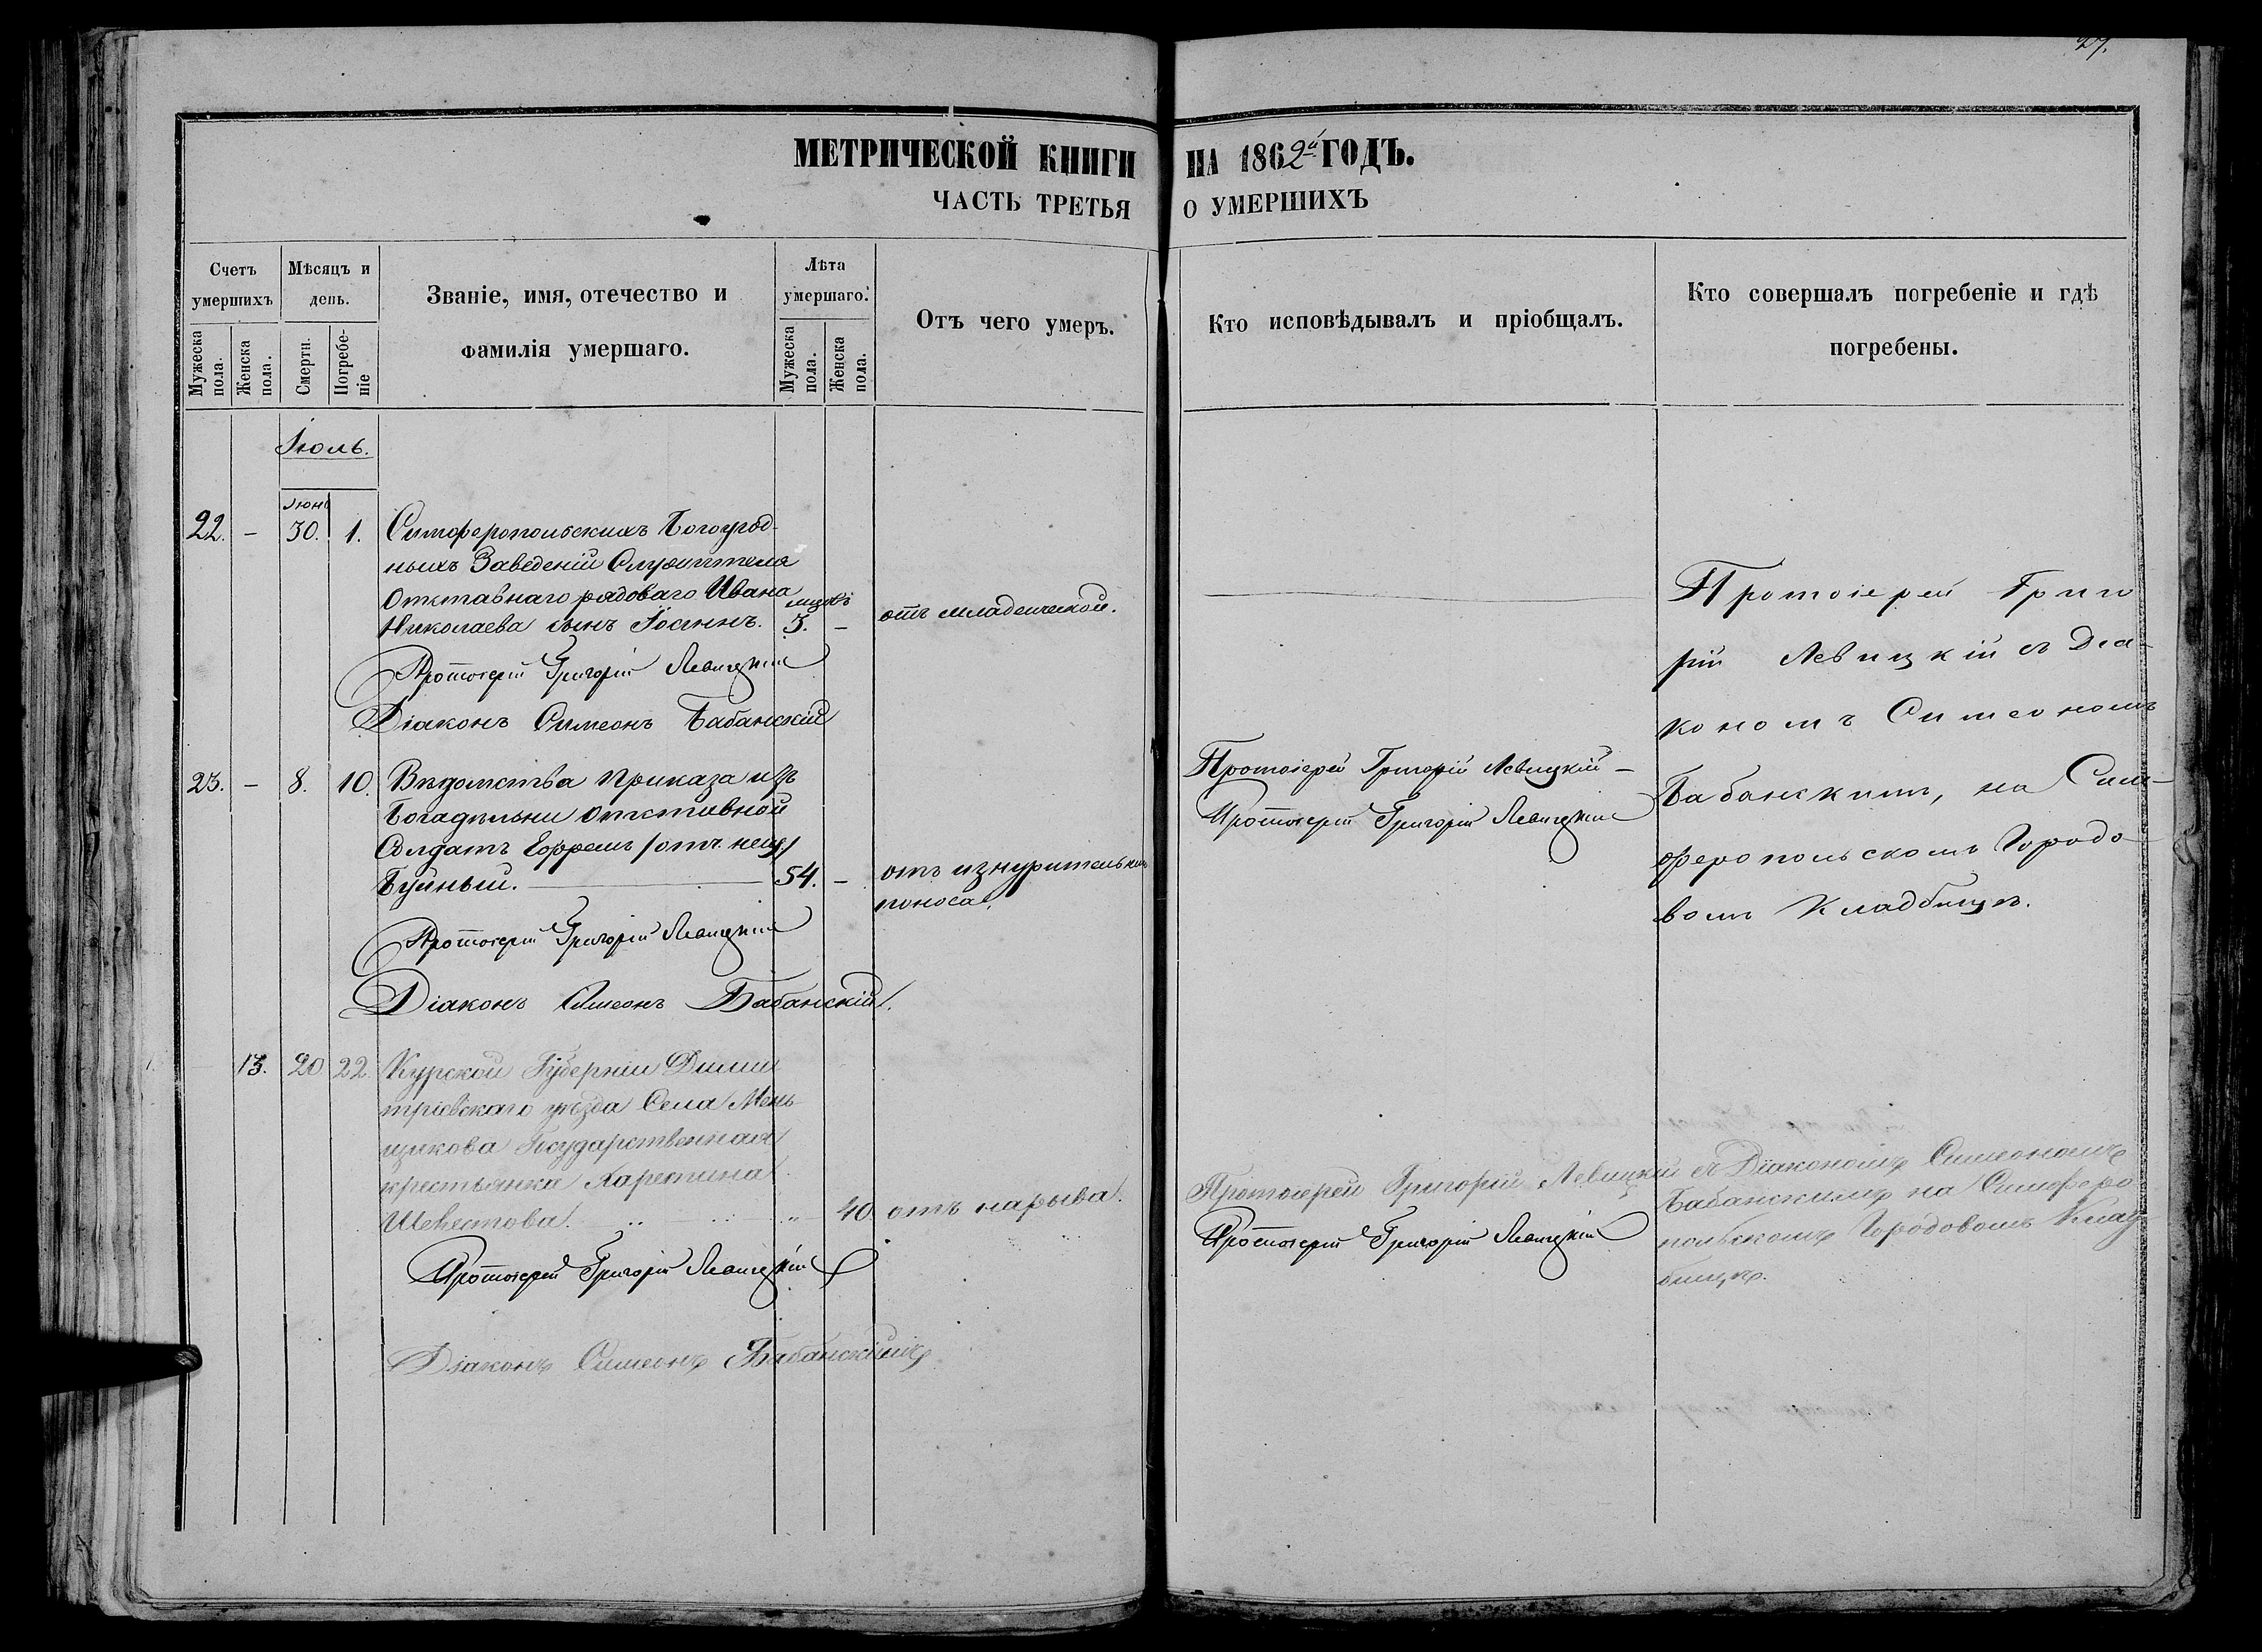 27.
МЕТРИЧЕСКОЙ КНИГИ НА 1862й ГОДЪ.
ЧАСТЬ ТРЕТЬЯ О УМЕРШИХЪ
Счетъ умершихъ
Мѣсяцъ и день.
Званіе, имя, отечество и фамилія умершаго.
Лѣта умершаго.
Отъ чего умеръ.
Кто исповѣдывалъ и пріобщалъ.
Кто совершалъ погребеніе и гдѣ погребены.
Мужеска пола.
Женска пола.
Смерти.
Погребеніе
Мужеска пола.
Женска пола.
Іюль.
Іюнь
22. – 30. 1.
Симферопольскихъ Богоугод-
ныхъ Заведеній Служителя
Отставнаго рядоваго Ивана
Николаева сынъ Іоаннъ.
3. –
отъ младенческой.
Протоіерей Григорій Левицкій
Діаконъ Симеонъ Бабанскій
Протоіерей Григо
рій Левицкій съ Діа-
кономъ Симеономъ
Бабанскимъ, на Сим-
феропольскомъ Городо-
вомъ Кладбищѣ.
23. – 8. 10.
Вѣдомства Приказа изъ
Богадѣльни отставной
Солдатъ Ефремъ /отч. неиз./
Буйный. 54. –
отъ изнурительнаго
поноса.
Протоіерей Григорій Левицкій –
Протоіерей Григорій Левицкій
Протоіерей Григорій Левицкій
Діаконъ Симеонъ Бабанскій.
13. 20 22.
Курской Губерніи Дими
тріевскаго уѣзда Села Мень
щикова Государственная
крестьянка Харетина
Шекестова. 40.
отъ нарыва.
Протоіерей Григорій Левицкій съ Діакономъ Симеономъ
Бабанскимъ на Симферо
польскомъ Городовомъ Клад
бищѣ.
Протоіерей Григорій Левицкій
Протоіерей Григорій Левицкій
Діаконъ Симеонъ Бабанскій